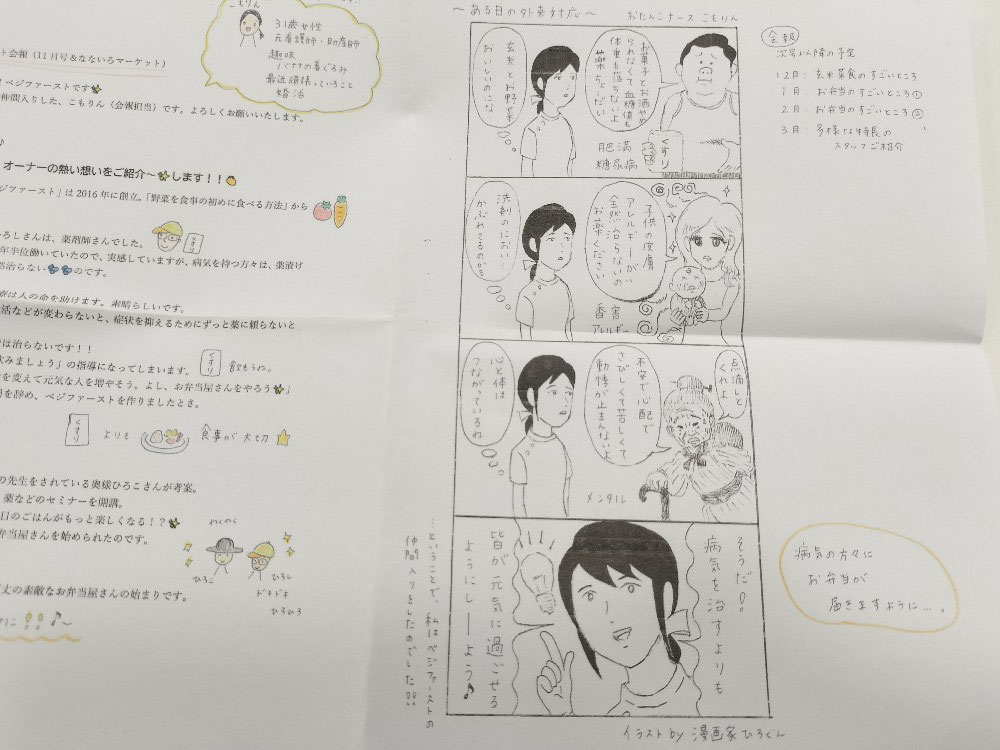 こもりん
31歳女性
元看護師・助産師
趣味
バナナの着ぐるみ
最近頑張っていること
婚活
ト会報(11月号&なないろマーケット)
ベジファーストです
仲間入りした、こもりん(会報担当)です。よろしくお願いいたします。
オーナーの熱い想いをご紹介~します!!
ジファースト」は2016年に創立。「野菜を食事の初めに食べる方法」から
ろしさんは、薬剤師さんでした。
くすり
年半位働いていたので、実感していますが、病気を持つ方々は、薬漬け
治らないのです。
療は人の命を助けます。素晴らしいです。
活などが変わらないと、症状を抑えるためにずっと薬に頼らないと
は治らないです!!
飲みましょう」の指導になってしまいます。
くすり
飲もうね。
を変えて元気な人を増やそう。よし、お弁当屋さんをやろう」
を辞め、ベジファーストを作りましたとさ。
くすり
よりも
食事が大切
の先生をされている奥様ひろこさんが考案。
薬などのセミナーを開講。
日のごはんがもっと楽しくなる!?
弁当屋さんを始められたのです。
わくわく
ひろこ
ひろし
ドキドキ
ひろひろ
丈の素敵なお弁当屋さんの始まりです。
~ある日の外来対応~
おたんこナース こもりん
お菓子とお酒やめ
られなくて血糖値も
体重も落ちないよ
薬ちょうだい
玄米とお野菜
おいしいのにな
肥満
糖尿病
くすり
子供の皮膚
アレルギーが、
全然治らないの
お薬ください
洗剤のにおい…
かぶれてるのかも
香害
アレルギー
点滴しと
くれよ
不安で心配で
さびしくて苦しくて
動悸が止まんないよ
心と体は
つながっているね
メンタル
そうだ!!
病気を治すよりも
皆が元気に過ごせる
ようにしーよう♪
…ということで、私はベジファーストの
仲間入りをしたのでした!!
イラスト by 漫画家ひろくん
会報
次号以降の予定
12月:玄米菜食のすごいところ
1月:お弁当のすごいところ①
2月:お弁当のすごいところ②
3月:多様な特長の
スタッフご紹介
病気の方々に
お弁当が
届きますように…。